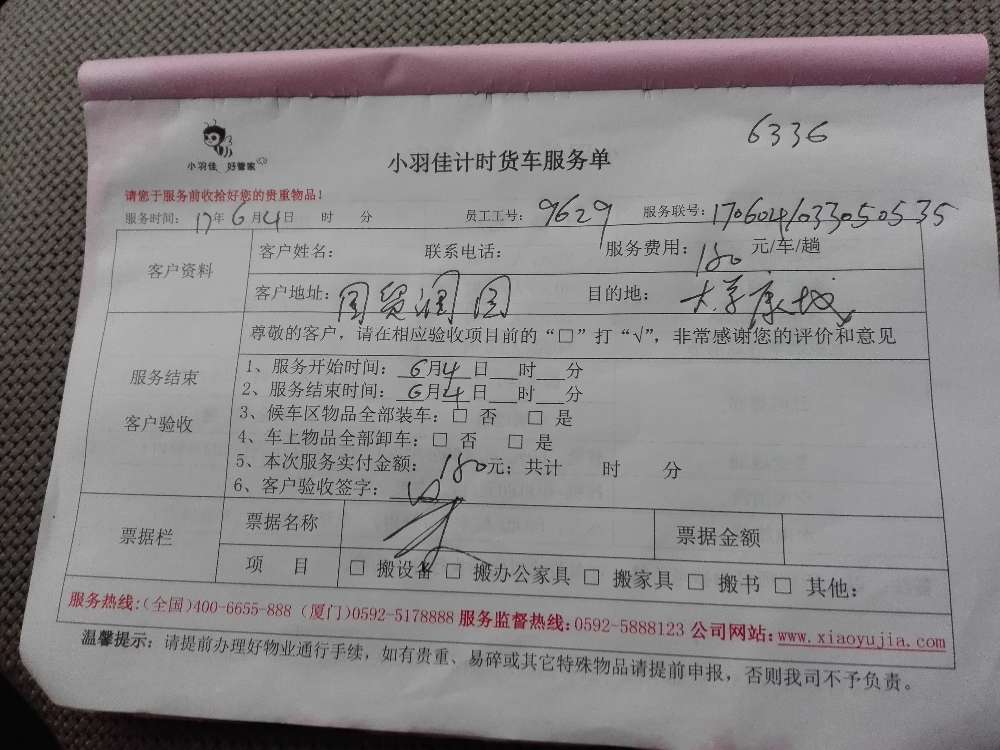 6336
小羽佳 好管家
小羽佳计时货车服务单
请您于服务前收拾好您的贵重物品！
服务时间： 17年6月4日 时 分 员工工号： 9629 服务联号： 1706041033050535
客户资料
客户姓名： 联系电话： 服务费用：180元/车/趟
客户地址：国贸润园 目的地： 大学康城
服务结束
客户验收
尊敬的客户，请在相应验收项目前的“□”打“√”，非常感谢您的评价和意见
1、服务开始时间：6月4日___时___分
2、服务结束时间：6月4日___时___分
3、候车区物品全部装车：□ 否 □ 是
4、车上物品全部卸车：□ 否 □ 是
5、本次服务实付金额：180元；共计 时 分
6、客户验收签字：
票据栏
票据名称 票据金额
项 目 □ 搬设备 □ 搬办公家具 □ 搬家具 □ 搬书 □ 其他：
服务热线:(全国)400-6655-888 (厦门)0592-5178888 服务监督热线:0592-5888123 公司网站:www.xiaoyujia.com
温馨提示：请提前办理好物业通行手续，如有贵重、易碎或其它特殊物品请提前申报，否则我司不予负责。